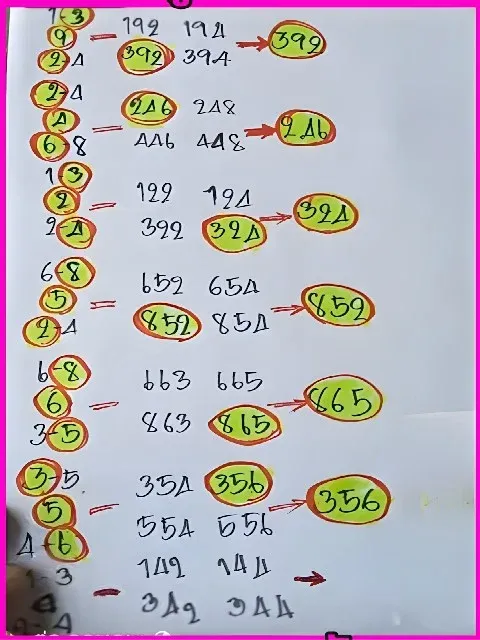 1-3 192 194
9 = → 392
2-4 392 394
2-4 246 248
4 = → 246
6-8 446 448
1-3 122 124
2 = → 324
2-4 392 324
6-8 652 654
5 = → 852
2-4 852 854
6-8 663 665
6 = → 865
3-5 863 865
3-5 354 356
5 = → 356
4-6 554 556
1-3 142 144 →
4 = 342 344
2-4